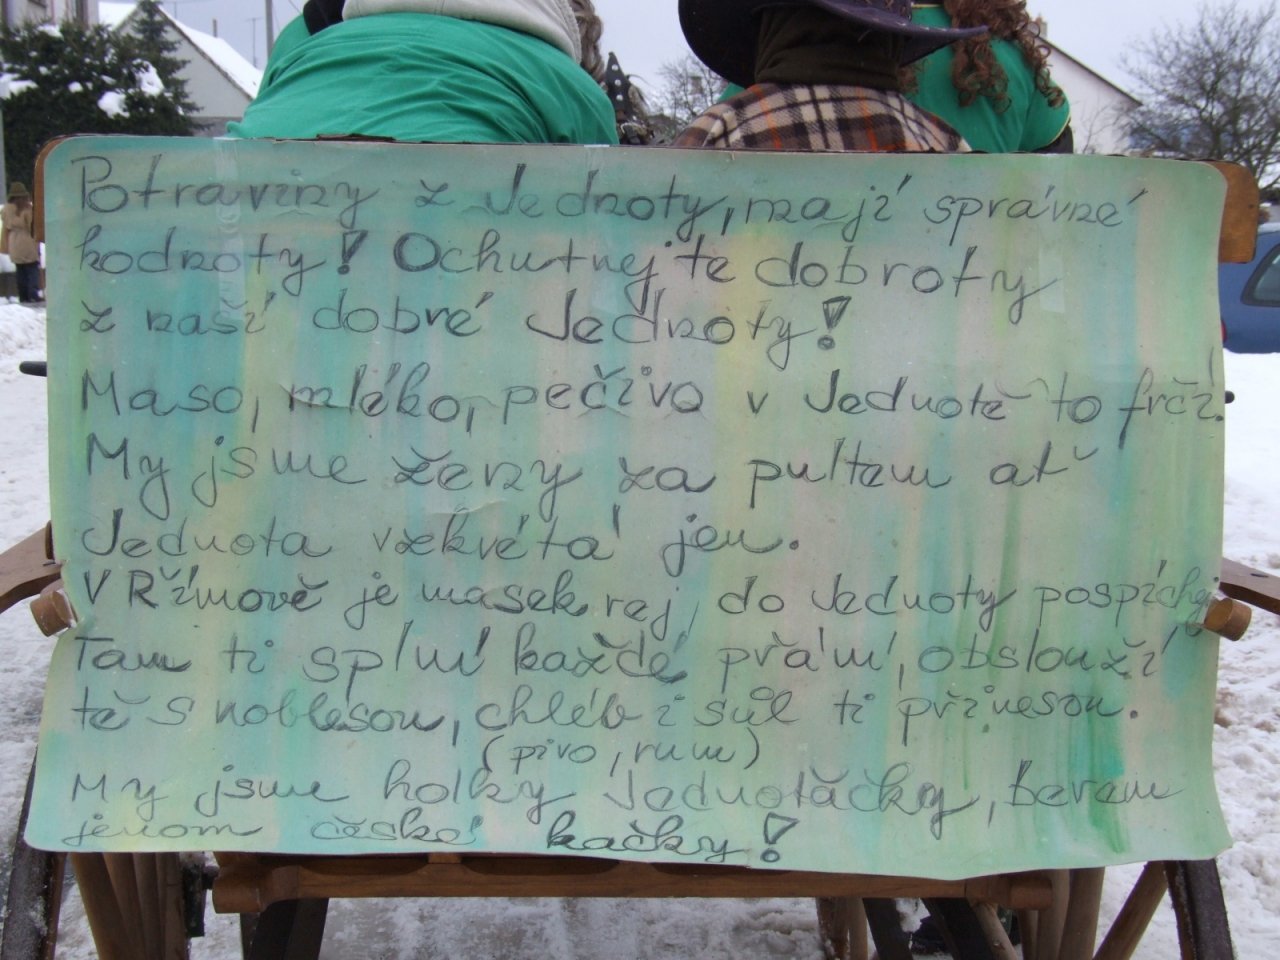 Potraviny z Jednoty, mají správné
hodnoty! Ochutnejte dobroty
z naší dobré Jednoty!
Maso, mléko, pečivo v Jednotě to frčí.
My jsme ženy za pultem ať
Jednota vzkvétá jen.
V Římově je masek rej, do Jednoty pospíchej
Tam ti splní každé přání, obslouží
tě s noblesou, chléb i sůl ti přinesou.
(pivo, rum)
My jsme holky Jednotáčky, berem
jenom české kačky!